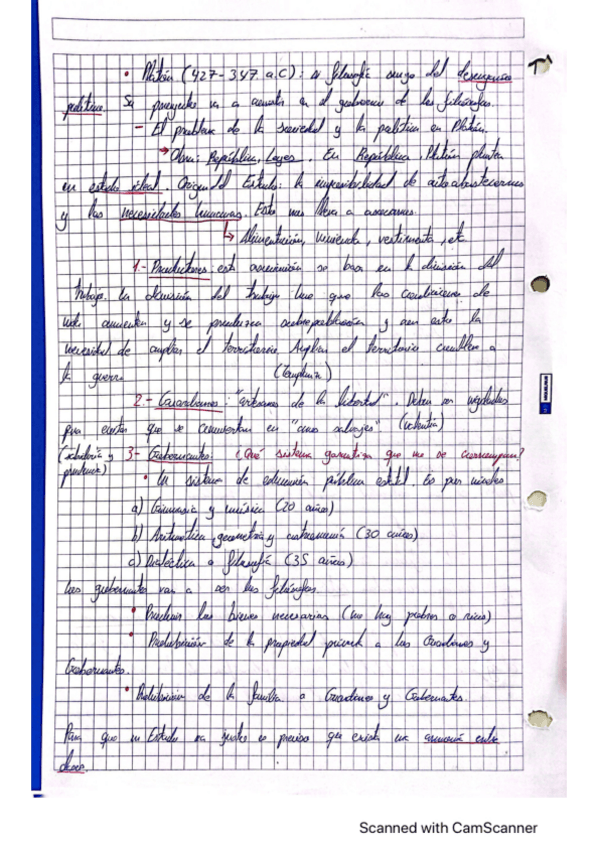 • Platón (427-347 a.C): su filosofía surge del desengaño
político. Su proyecto va a consistir en el gobierno de los filósofos.
- El problema de la sociedad y la política en Platón.
→ Obra: República, Leyes. En República, Platón plantea
un estado ideal. Origen del Estado: la imposibilidad de autoabastecernos
y las necesidades humanas. Esto nos lleva a asociarnos.
↳ Alimentación, vivienda, vestimenta, etc
1.- Productores: esta asociación se basa en la división del
trabajo. La división del trabajo hace que las condiciones de
vida aumenten y se produzca sobrepoblación y con esto la
necesidad de ampliar el territorio. Ampliar el territorio conlleva a
la guerra. (Templanza)
2.- Guardianes: "artesanos de la libertad". Deben ser vigilados
para evitar que se conviertan en "canes salvajes" (valentía)
(sabiduría y 3- Gobernantes: ¿Qué sistema garantiza que no se corrompan?
prudencia)
• Un sistema de educación pública estatal. Es por niveles
a) Gimnasia y música (20 años)
b) Aritmética, geometría y astronomía (30 años)
c) Dialéctica o filosofía (35 años)
Los gobernantes van a ser los filósofos.
• Producir los bienes necesarios (no hay pobres o ricos)
• Prohibición de la propiedad privada a los Guardianes y
Gobernantes.
• Prohibición de la familia a Guardianes y Gobernantes.
Para que un Estado sea justo es preciso que exista una armonía entre
clases.
Scanned with CamScanner